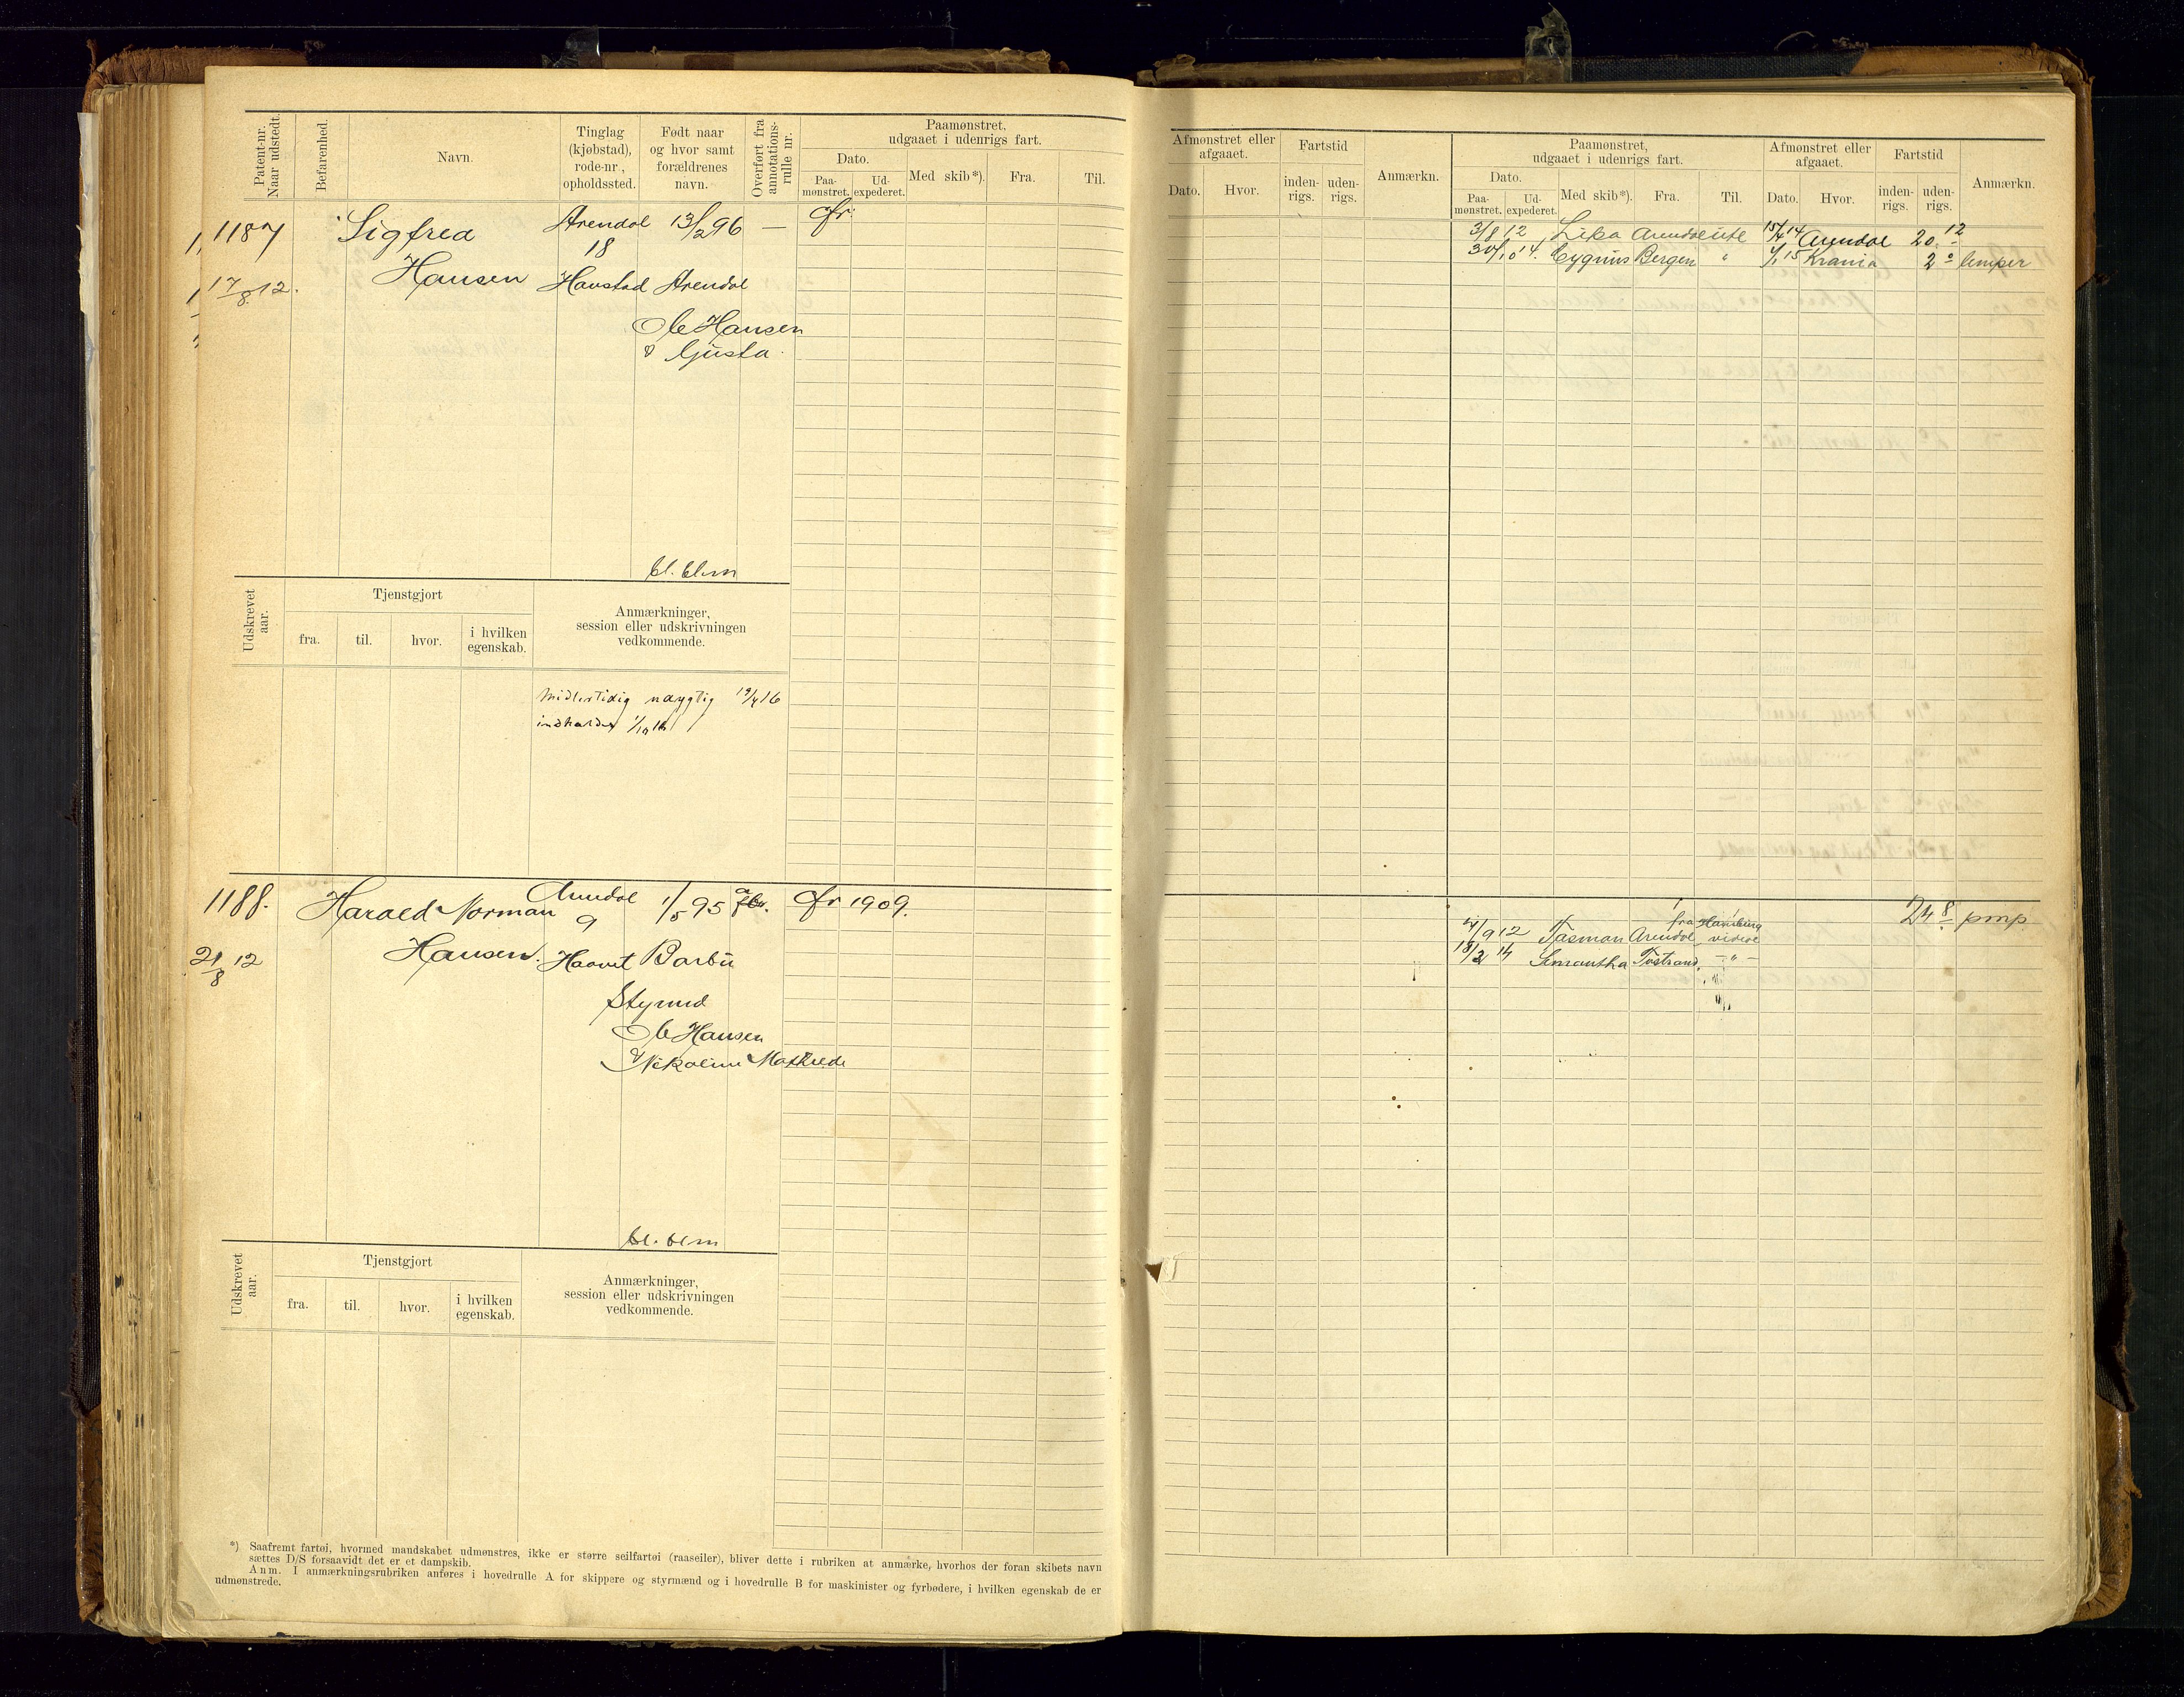 Patent-nr.
Naar udstedt.
Befarenhed.
Navn.
Tinglag
(kjøbstad),
rode-nr.,
opholdssted.
Født naar
og hvor samt
forældrenes
navn.
Overført fra
annotations-
rulle nr.
Paamønstret,
udgaaet i udenrigs fart.
Dato.
Paa-
mønstret.
Ud-
expederet.
Med skib*).
Fra.
Til.
1187
Sigfred
Arendal
13/2 96
—
fr.
18
17/8 12.
Hansen
Havstad
Arendal
Ole Hansen
& Gusta.
bl. blm
Udskrevet
aar.
Tjenstgjort
fra.
til.
hvor.
i hvilken
egenskab.
Anmærkninger,
session eller udskrivningen
vedkommende.
Midlertidig udygtig 19/4 16
1188.
Harald Norman
Arendal
1/5 95
fr 1909.
9
21/8 12
Hansen.
Haavet
Barbu
Styrmd
Ole Hansen
& Nikoline Mathilde
bl. blm
Udskrevet
aar.
Tjenstgjort
fra.
til.
hvor.
i hvilken
egenskab.
Anmærkninger,
session eller udskrivningen
vedkommende.
*) Saafremt fartøi, hvormed mandskabet udmønstres, ikke er større seilfartøi (raaseiler), bliver dette i rubriken at anmærke, hvorhos der foran skibets navn
sættes D/S forsaavidt det er et dampskib.
Anm. I anmærkningsrubriken anføres i hovedrulle A for skippere og styrmænd og i hovedrulle B for maskinister og fyrbødere, i hvilken egenskab de er
udmønstrede.
Afmønstret eller
afgaaet.
Dato.
Hvor.
Fartstid
inden-
rigs.
uden-
rigs.
Anmærkn.
Paamønstret,
udgaaet i udenrigs fart.
Dato.
Paa-
mønstret.
Ud-
expederet.
Med skib*).
Fra.
Til.
Afmønstret eller
afgaaet.
Dato.
Hvor.
Fartstid
inden-
rigs.
uden-
rigs.
Anmærkn.
3/8 12 Lika Arendal utl 15/4 14 Arendal 20. 12
30/10 14. Cygnus Bergen " 4/1 15 Krania 2 0 lemper
fra Hamburg
24 8 pmp
4/9 12 Tasman Arendal videre
18/2 14 Semantha Tvstrand - " -